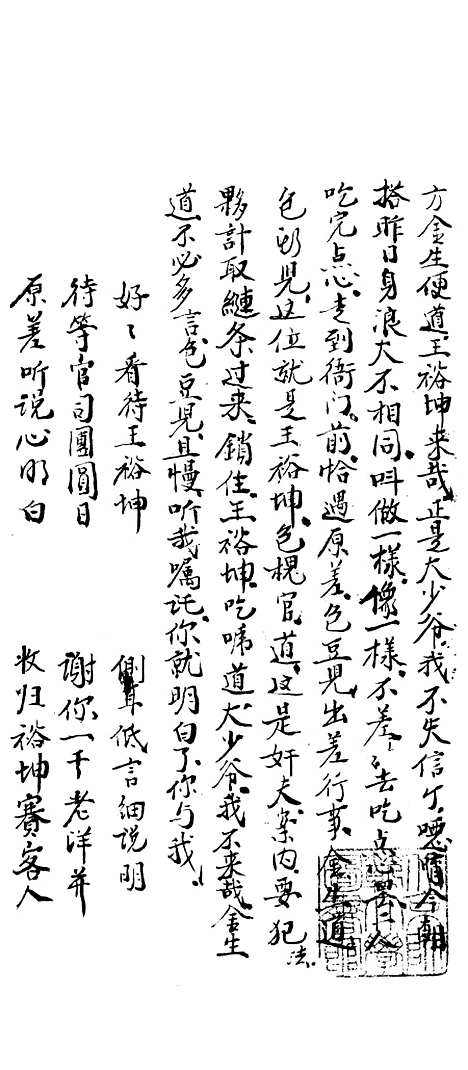 方金生便道、王裕坤来哉、正是大少爷、我不失信了、嗯、情今朝
搭昨日身浪大不相同、叫做一样、像一样、不差、去吃点心罢、二人
吃完点心、走到衙门前、恰遇原差、色豆児出差行事、金生道
色豆児、这位就是王裕坤、色槐官道、这是奸夫、案内要犯法
夥計取鏈条过来、鎖住王裕坤、吃啼道、大少爷、我不来哉、金生
道、不必多言、色豆児、且慢、听我嘱託、你就明白了、你与我、
好〻看待王裕坤 側耳低言細说明
待等官司團圓日 謝你一千老洋并
原差听说心明白 收归裕坤賽客人